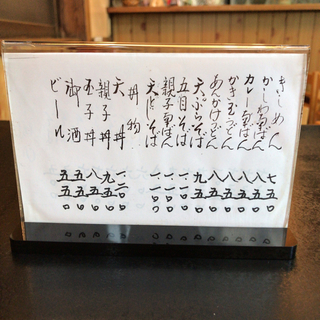 きしめん 七五〇
かしわ南ばん 八五〇
カレー南ばん 八五〇
かき玉うどん 八五〇
あんかけうどん 八五〇
天ぷらそば 九五〇
五目そば 一一〇〇
親子南ばん 一一〇〇
天とじそば 一一〇〇
丼物
天丼
親子丼 九五〇
玉子丼 八五〇
御酒 五五〇
ビール 五五〇